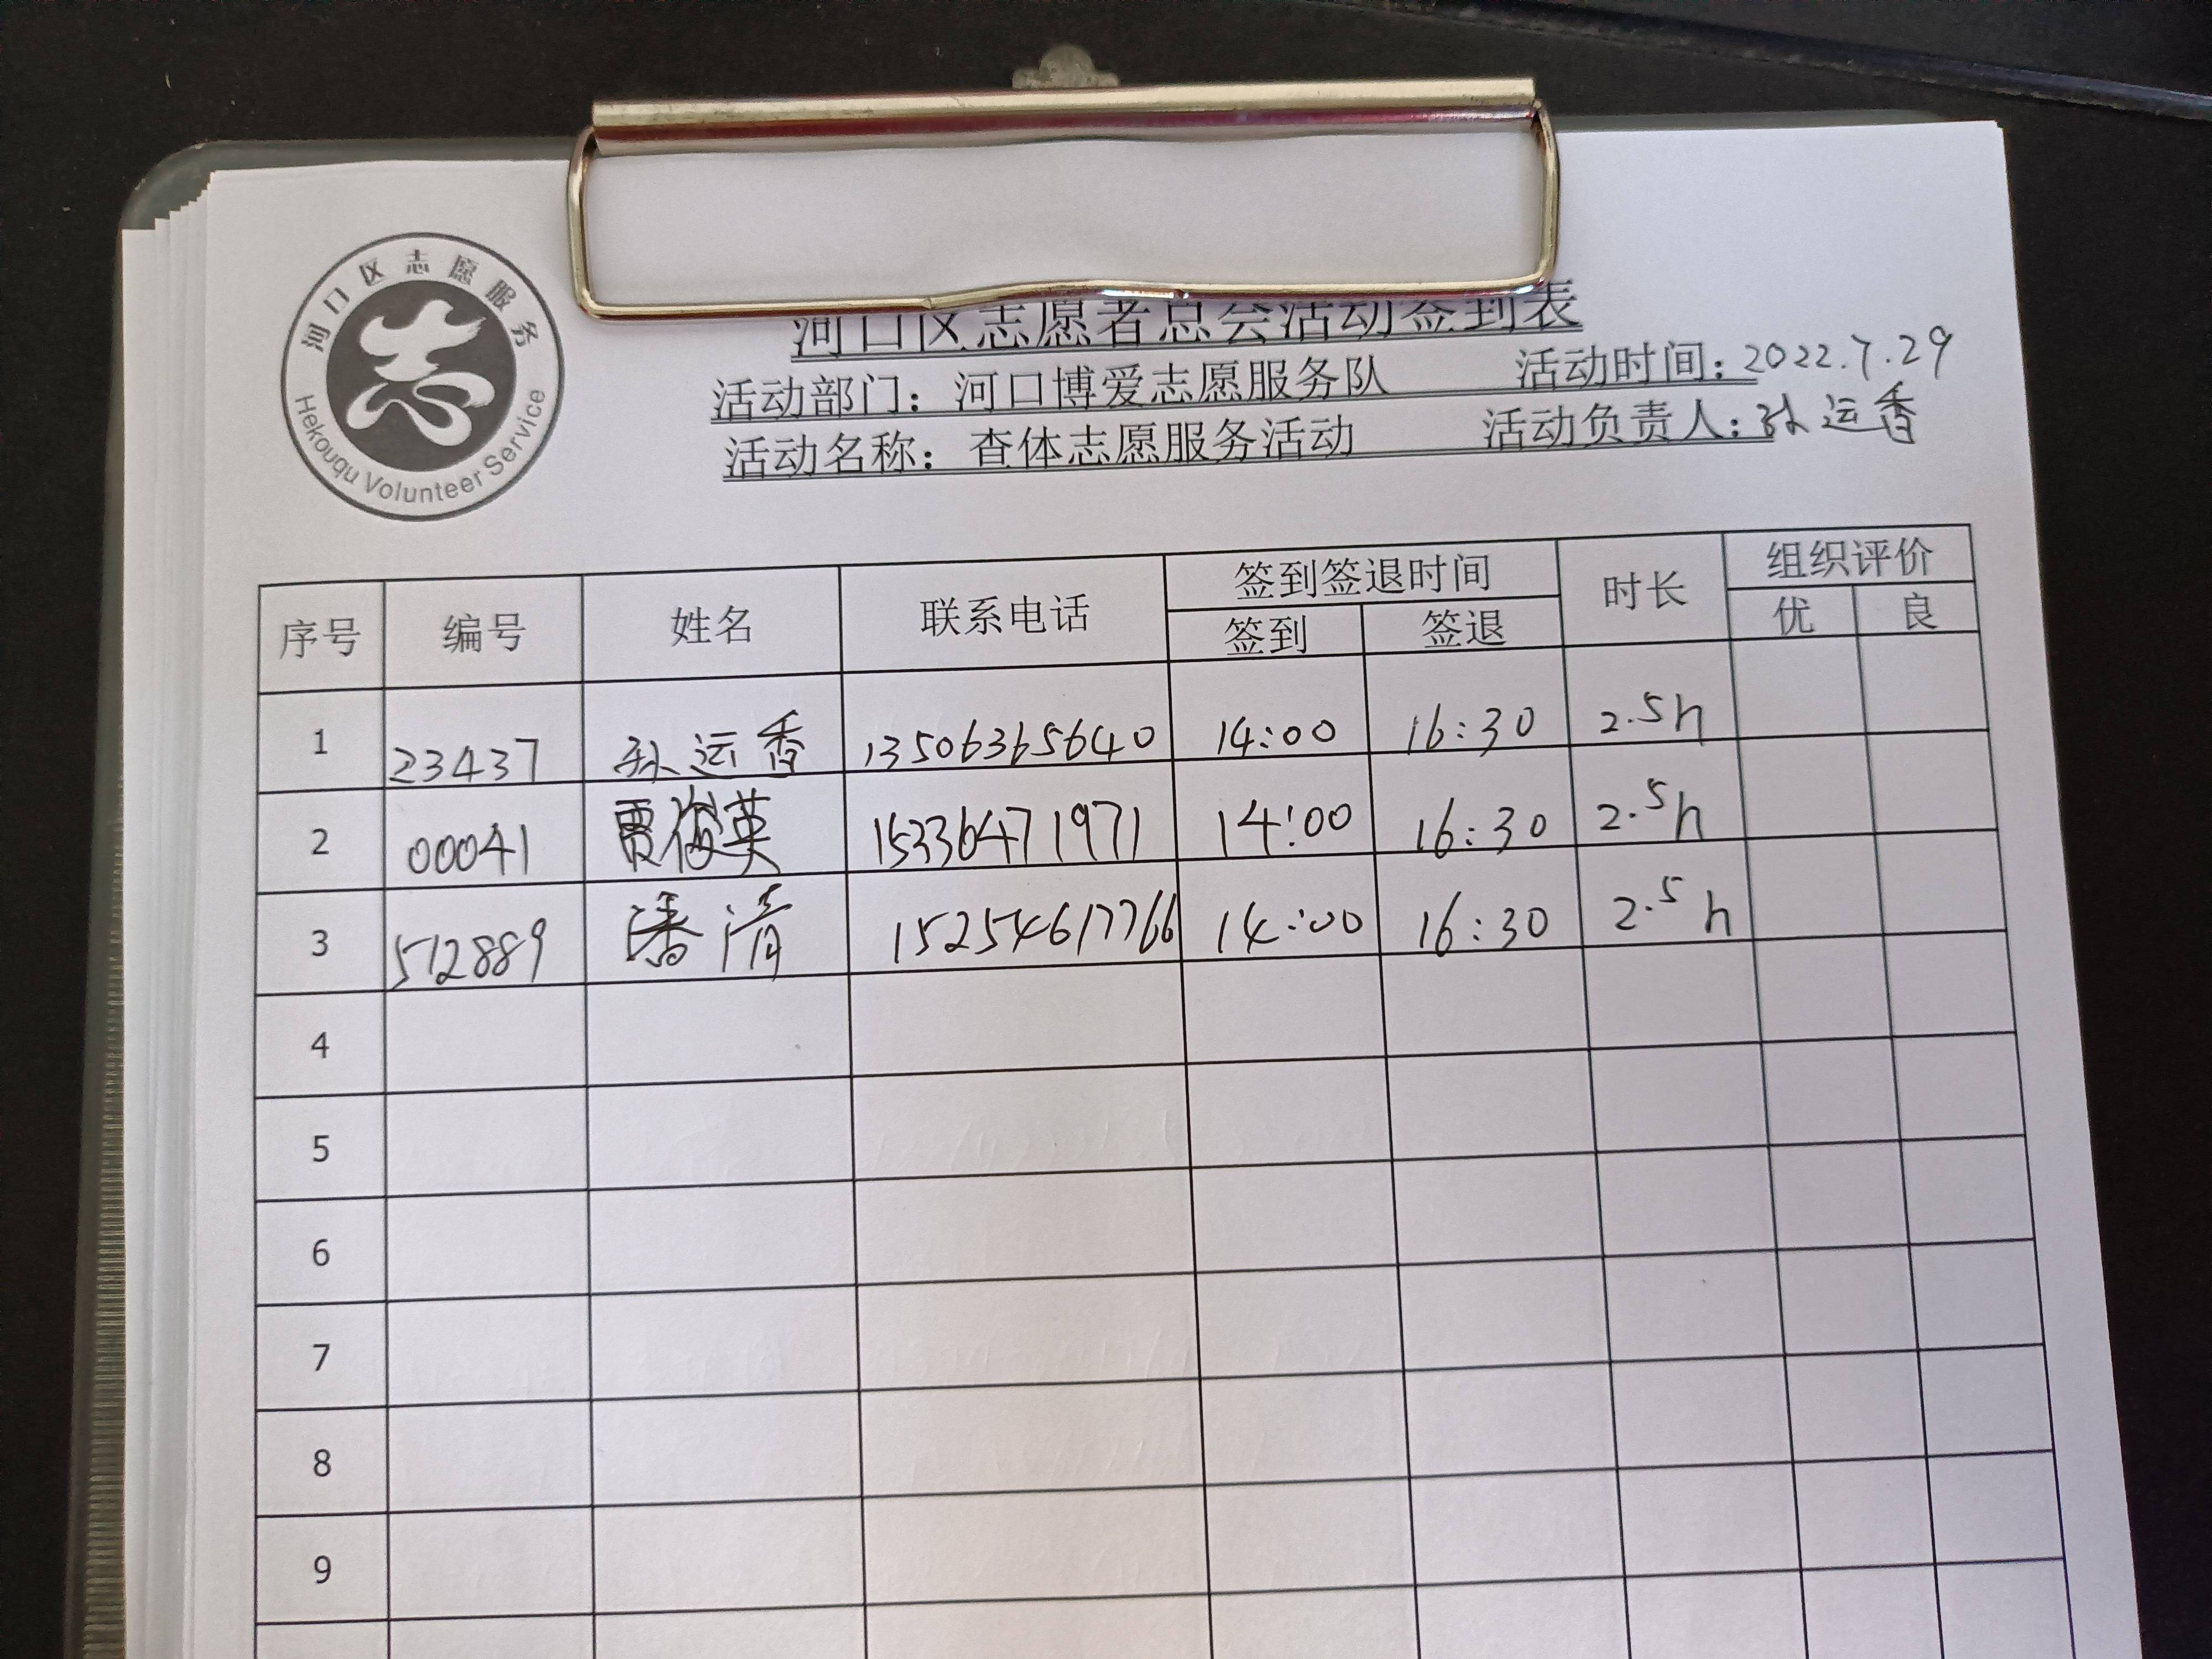 河口区志愿服务
Hekouqu Volunteer Service
河口区志愿者总会活动签到表
活动部门：河口博爱志愿服务队 活动时间：2022.7.29
活动名称：查体志愿服务活动 活动负责人：孙运香
序号 编号 姓名 联系电话 签到签退时间 时长 组织评价
签到 签退 优 良
1 23437 孙运香 13506365640 14:00 16:30 2.5h
2 00041 贾俊英 15336471971 14:00 16:30 2.5h
3 512889 潘清 15254617766 14:00 16:30 2.5h
4
5
6
7
8
9